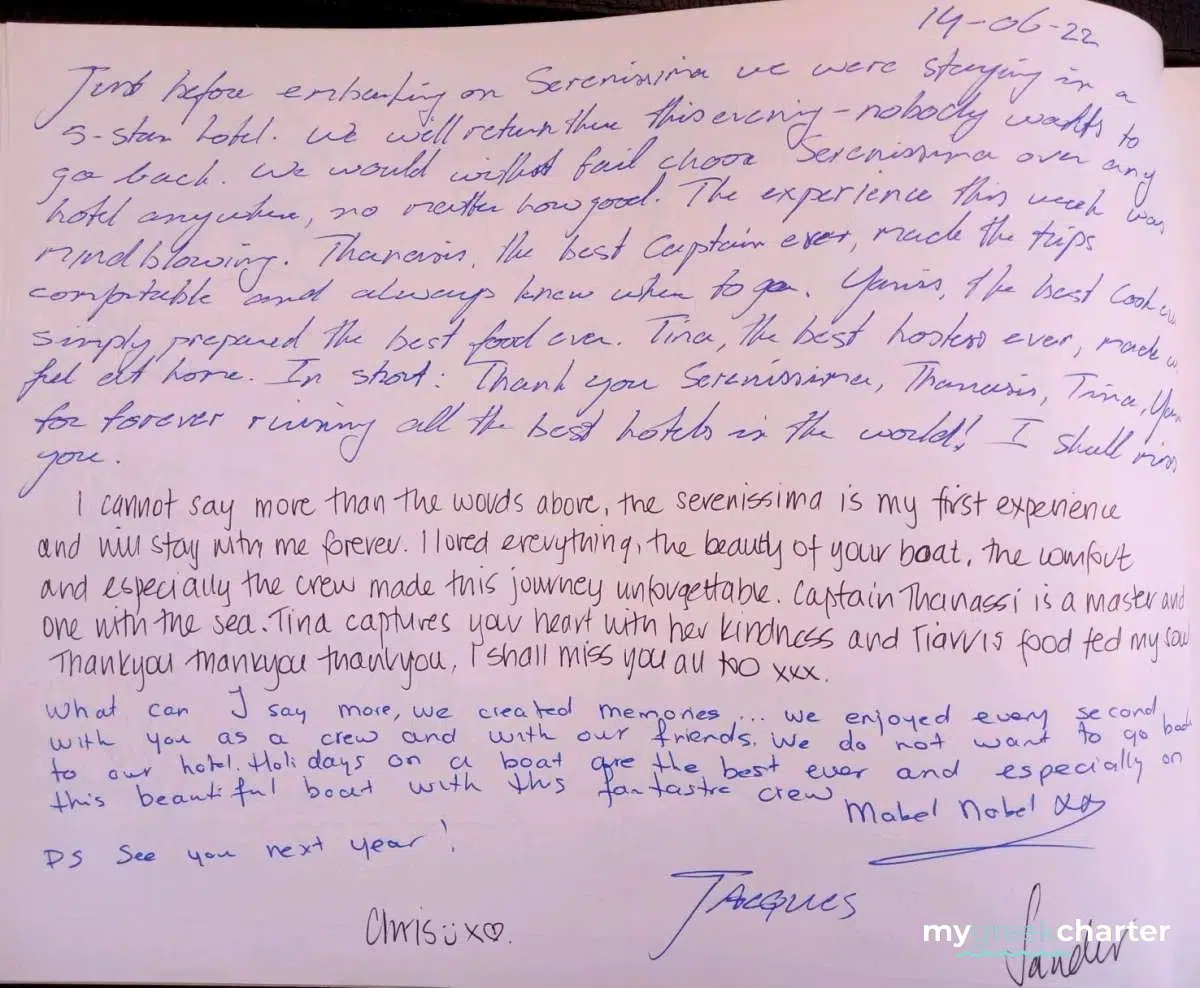 14-06-22
Just before embarking on Serenissima we were staying in a
5-star hotel. We will return there this evening - nobody wants to
go back. We would without fail choose Serenissima over any
hotel anywhere, no matter how good. The experience this week was
mindblowing. Thanasis, the best Captain ever, made the trips
comfortable and always knew when to go. Yanis, the best cook
simply prepared the best food ever. Tina, the best hostess ever, made
feel at home. In short: Thank you Serenissima, Thanasis, Tina,
for forever ruining all the best hotels in the world! I shall miss
you.
I cannot say more than the words above, the serenissima is my first experience
and will stay with me forever. I loved everything, the beauty of your boat, the comfort
and especially the crew made this journey unforgettable. Captain Thanassi is a master and
one with the sea. Tina captures your heart with her kindness and food fed my soul
Thankyou thankyou thankyou, I shall miss you all too xxx.
What can I say more, we created memories... we enjoyed every second
with you as a crew and with our friends. We do not want to go back
to our hotel. Holidays on a boat are the best ever and especially on
this beautiful boat with this fantastic crew
Mabel Nobel xx
PS See you next year!
Jacques
Chris ü x♡.
Sander
mygreekcharter